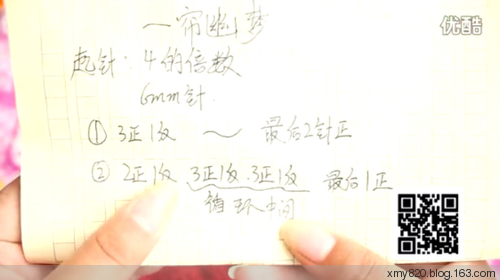 一帘幽梦
优酷
起针：4的倍数
6mm针.
①3正1反 ～ 最后2针正
②2正1反 3正1反.3正1反 最后1正
循环中间
xmy820.blog.163.com